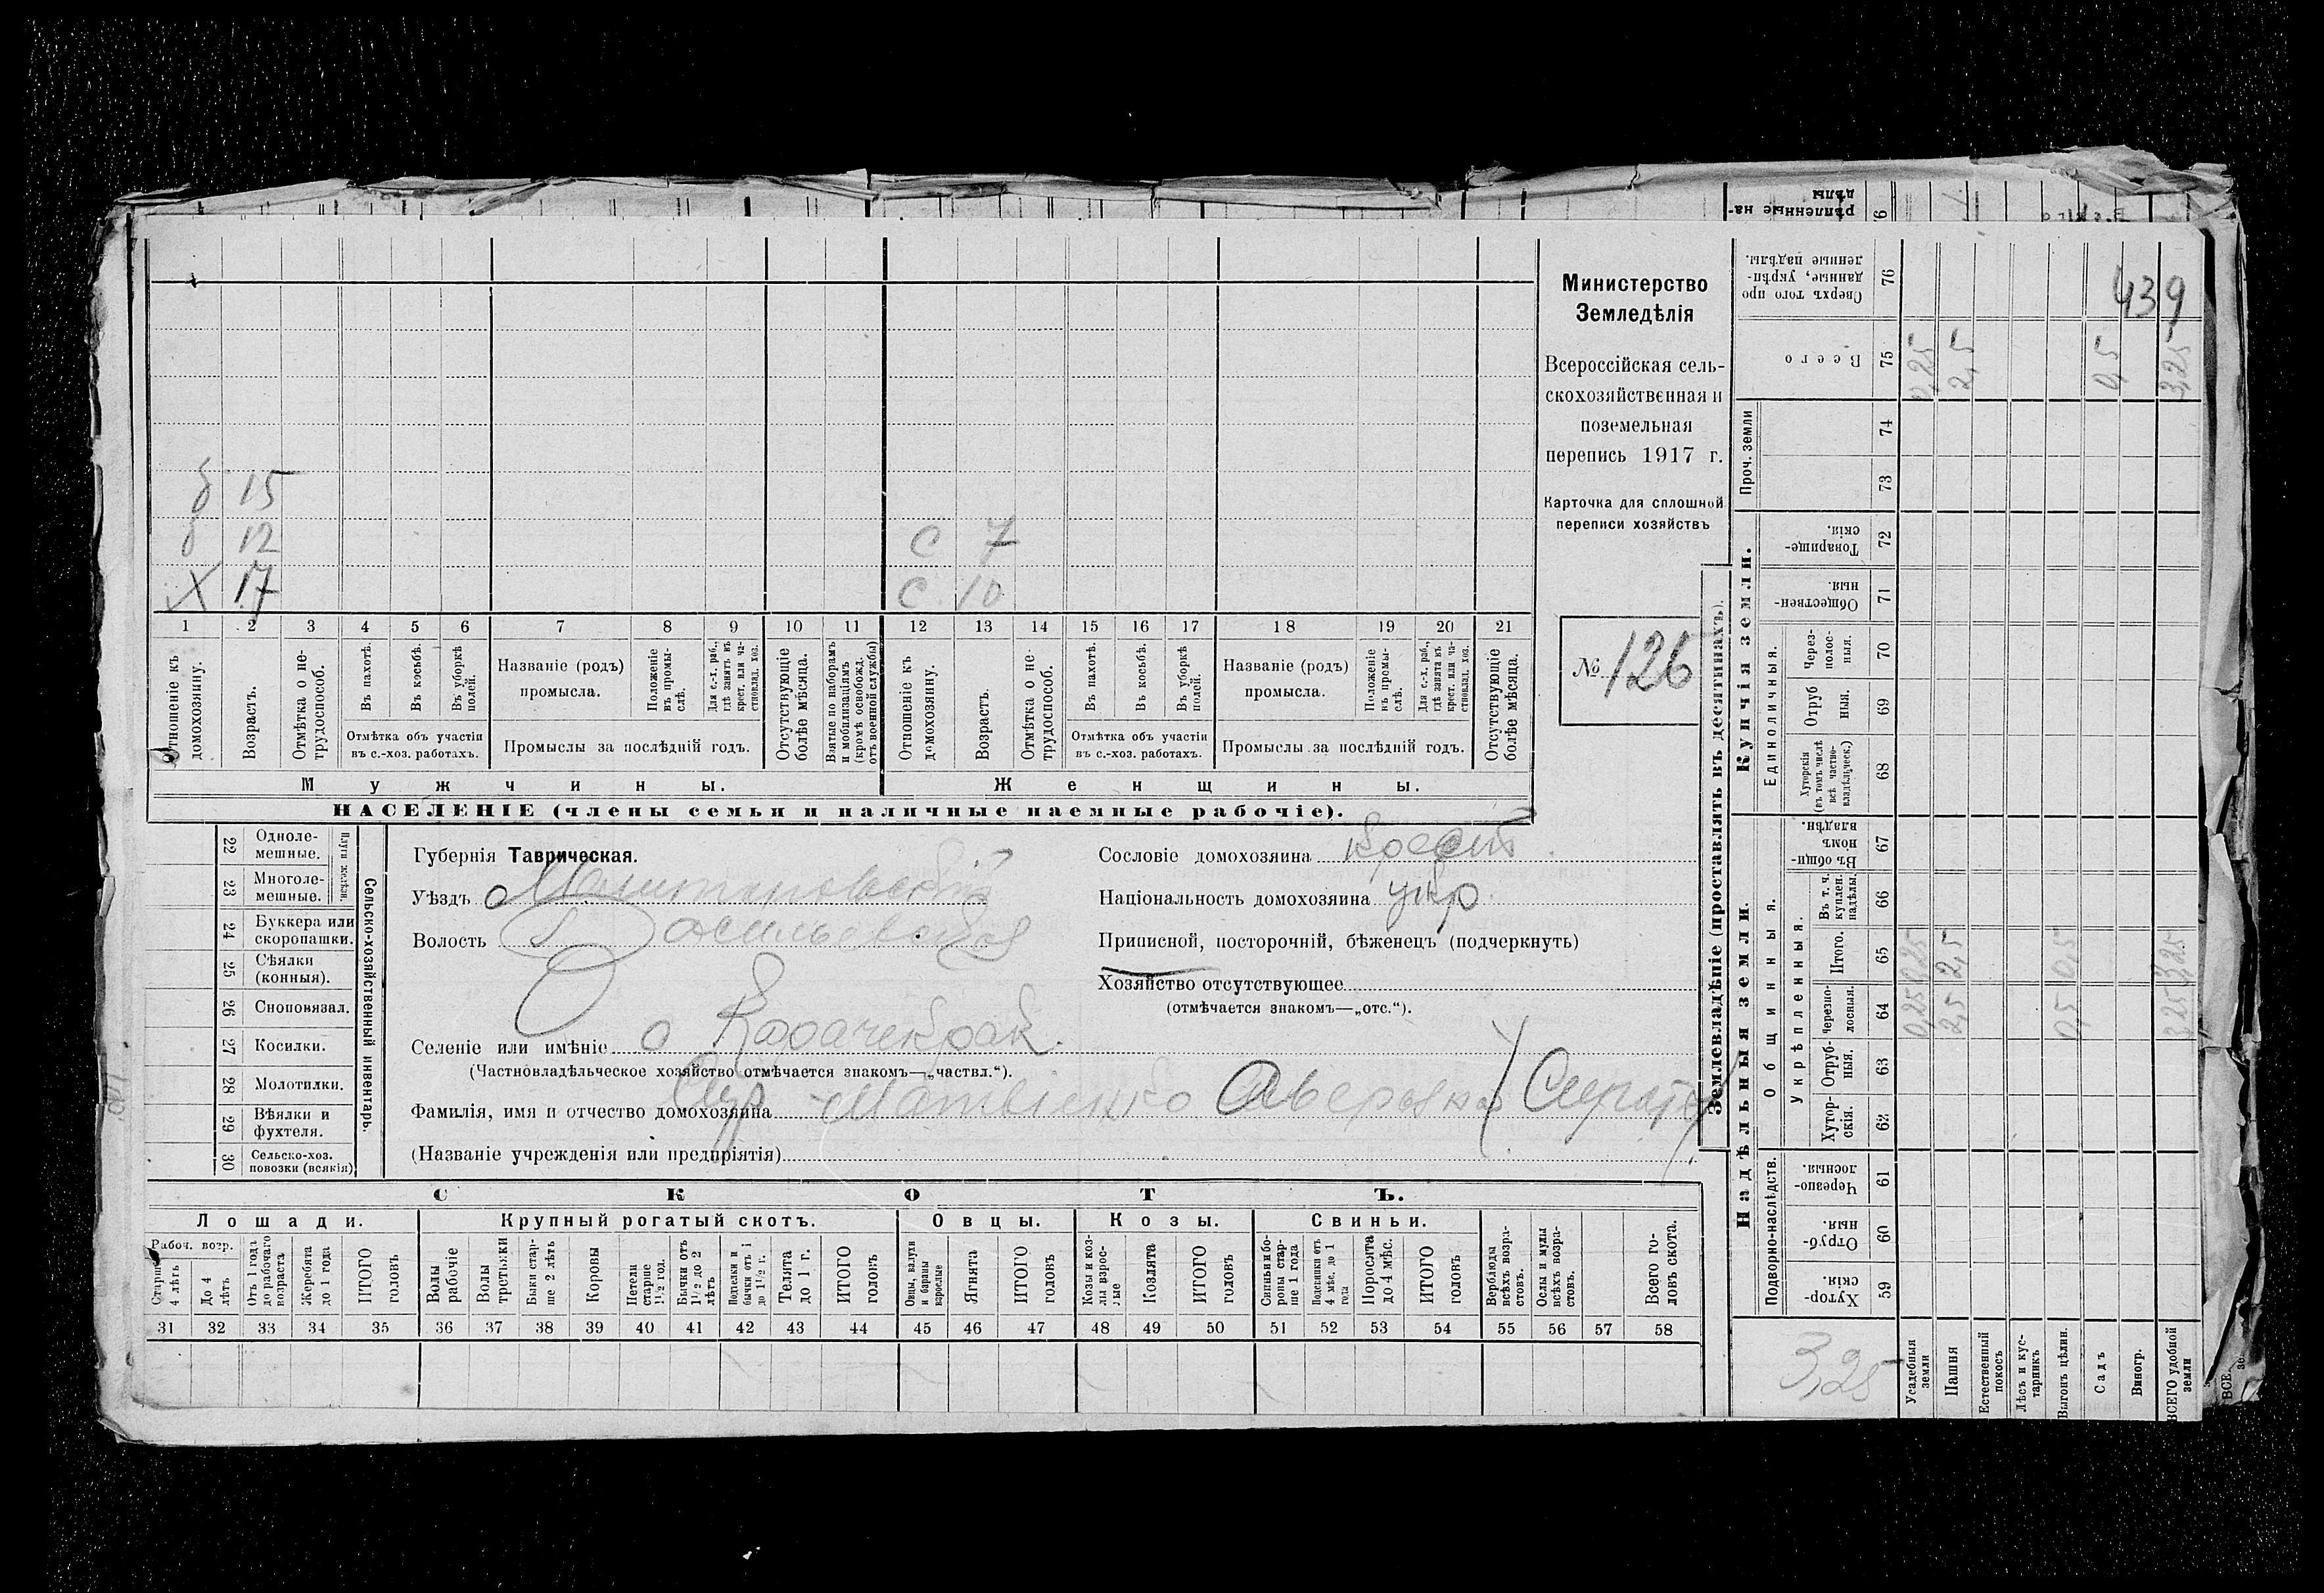 439
Министерство
Земледѣлія
Всероссійская сель-
скохозяйственная и
поземельная
перепись 1917 г.
Карточка для сплошной
переписи хозяйствъ
№ 126
б 15
б 12 с 7
Х 17 с 10
1 2 3 4 5 6 7 8 9 10 11 12 13 14 15 16 17 18 19 20 21
Отношеніе къ домохозяину.
Возрастъ.
Отмѣтка о не-трудоспособ.
Въ пахотѣ.
Въ косьбѣ.
Въ уборкѣ полей.
Отмѣтка объ участіи
въ с.-хоз. работахъ.
Названіе (родъ)
промысла.
Положеніе въ промы-слѣ.
Для с.-х. раб., гдѣ занятъ въ крест. или ча-стновлад. хоз.
Промыслы за послѣдній годъ.
Отсутствующіе болѣе мѣсяца.
Взятые по наборамъ и мобилизаціямъ (кромѣ освобожд. отъ военной службы)
Отношеніе къ домохозяину.
Возрастъ.
Отмѣтка о не-трудоспособ.
Въ пахотѣ.
Въ косьбѣ.
Въ уборкѣ полей.
Отмѣтка объ участіи
въ с.-хоз. работахъ.
Названіе (родъ)
промысла.
Положеніе въ промы-слѣ.
Для с.-х. раб., гдѣ занята въ крест. или ча-стновлад. хоз.
Промыслы за послѣдній годъ.
Отсутствующіе болѣе мѣсяца.
Мужчины. Женщины.
НАСЕЛЕНІЕ (члены семьи и наличные наемные рабочіе).
22 Одноле-мешные.
23 Многоле-мешные.
Плуги желѣзн.
24 Буккера или скоропашки.
25 Сѣялки (конныя).
26 Сноповязал.
27 Косилки.
28 Молотилки.
29 Вѣялки и фухтеля.
30 Сельско-хоз. повозки (всякія)
Сельско-хозяйственный инвентарь.
Губернія Таврическая.
Уѣздъ Мелитопольскій
Волость Васильевская
Селеніе или имѣніе с Карачекрак
(Частновладѣльческое хозяйство отмѣчается знакомъ—„частвл.“).
Фамилія, имя и отчество домохозяина Матвіенко
(Названіе учрежденія или предпріятія)
Сословіе домохозяина крест
Національность домохозяина укр
Приписной, посторочній, бѣженецъ (подчеркнуть)
Хозяйство отсутствующее
(отмѣчается знакомъ—„отс.“).
СКОТЪ.
Лошади. Крупный рогатый скотъ. Овцы. Козы. Свиньи.
Рабоч. возр.
Старше 4 лѣтъ
До 4 лѣтъ
Отъ 1 года до рабочаго возраста
Жеребята до 1 года
ИТОГО головъ
Волы рабочіе
Волы третьяки
Быки стар-ше 2 лѣтъ
Коровы
Нетели старше 1½ год.
Бычки отъ 1½ до 2 лѣтъ
Подтелки и бычки отъ 1 до 1½ г.
Телята до 1 г.
ИТОГО головъ
Овцы, валухи и бараны взрослые
Ягнята
ИТОГО головъ
Козы и коз-лы взрос-лые
Козлята
ИТОГО головъ
Свиньи и бо-ровы стар-ше 1 года
Подсвинки отъ 4 мѣс. до 1 года
Поросята до 4 мѣс.
ИТОГО головъ
Верблюды всѣхъ возра-стовъ.
Ослы и мулы всѣхъ возра-стовъ.
Всего го-ловъ скота.
31 32 33 34 35 36 37 38 39 40 41 42 43 44 45 46 47 48 49 50 51 52 53 54 55 56 57 58
Землевладѣніе (проставлять въ десятинахъ).
Купчія земли.
Надѣльныя земли.
Проч. земли
Единоличныя.
Общинныя.
Укрѣпленныя.
Подворно-наслѣдств.
Сверхъ того про данные, укрѣп-ленные надѣлы. 76
Всего 75 0,25 2,5 0,5 3,25
74
73
Товарище-скія. 72
Обществен-ныя. 71
Через-полос-ныя. 70
Отруб ныя. 69
Хуторскія (въ томъ числѣ всѣ частно-владѣльческ.) 68
Въ общи-номъ владѣн. 67
Въ т. ч. куплен. надѣлы. 66
Итого. 65 0,25 2,5 0,5 3,25
Черезпо-лосныя. 64 0,25 2,5 0,5 3,25
Отруб-ныя. 63
Хутор-скія. 62
Черезпо-лосныя. 61
Отруб-ныя. 60
Хутор-скія. 59
3,25
Усадебныя земли
Пашня
Естественный покосъ
Лѣсъ и кус-тарникъ
Выгонъ цѣлин.
Садъ
Виногр.
ВСЕГО удобной земли